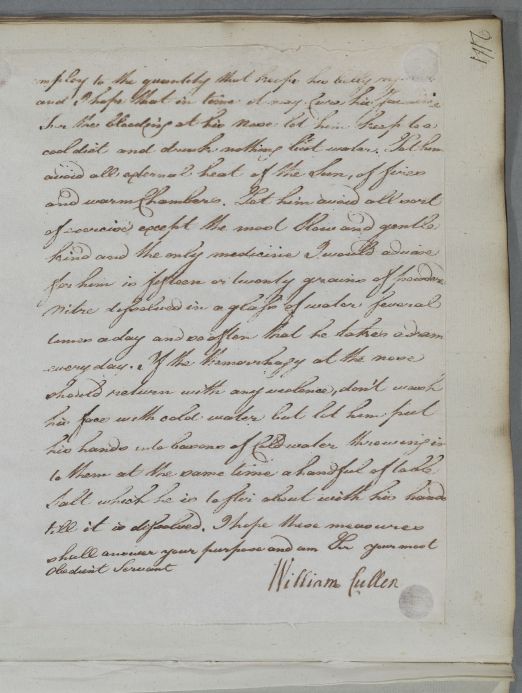 mploy to the quantity that keeps his belly regular
and I hope that in time it may Cure his Jaundice
For the bleeding at his nose let him keep to a
cool diet and drink nothing but water. Let him
avoid all external heat of the Sun, of fires
and warm Chambers. Let him avoid all sort
of exercise except the most slow and gentle
kind and the only medicine I would advise
for him is fifteen or twenty grains of powder'd
Nitre dissolved in a glass of water several
times a day and so often that he takes a dram
every day. If the Hemorrhagy at the nose
should return with any violence, don't wash
his face with cold water but let him put
his hands into basons of Cold water throwing in
to them at the same time a handful of table
Salt which he is to stir about with his hands
till it is dissolved. I hope these measures
shall answer your purpose and am Sir your most
Obedient Servant
William Cullen